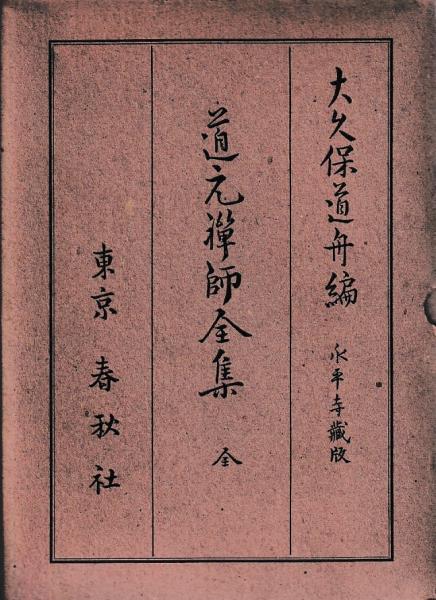 大久保道舟編 永平寺藏版
道元禪師全集 全
東京 春秋社